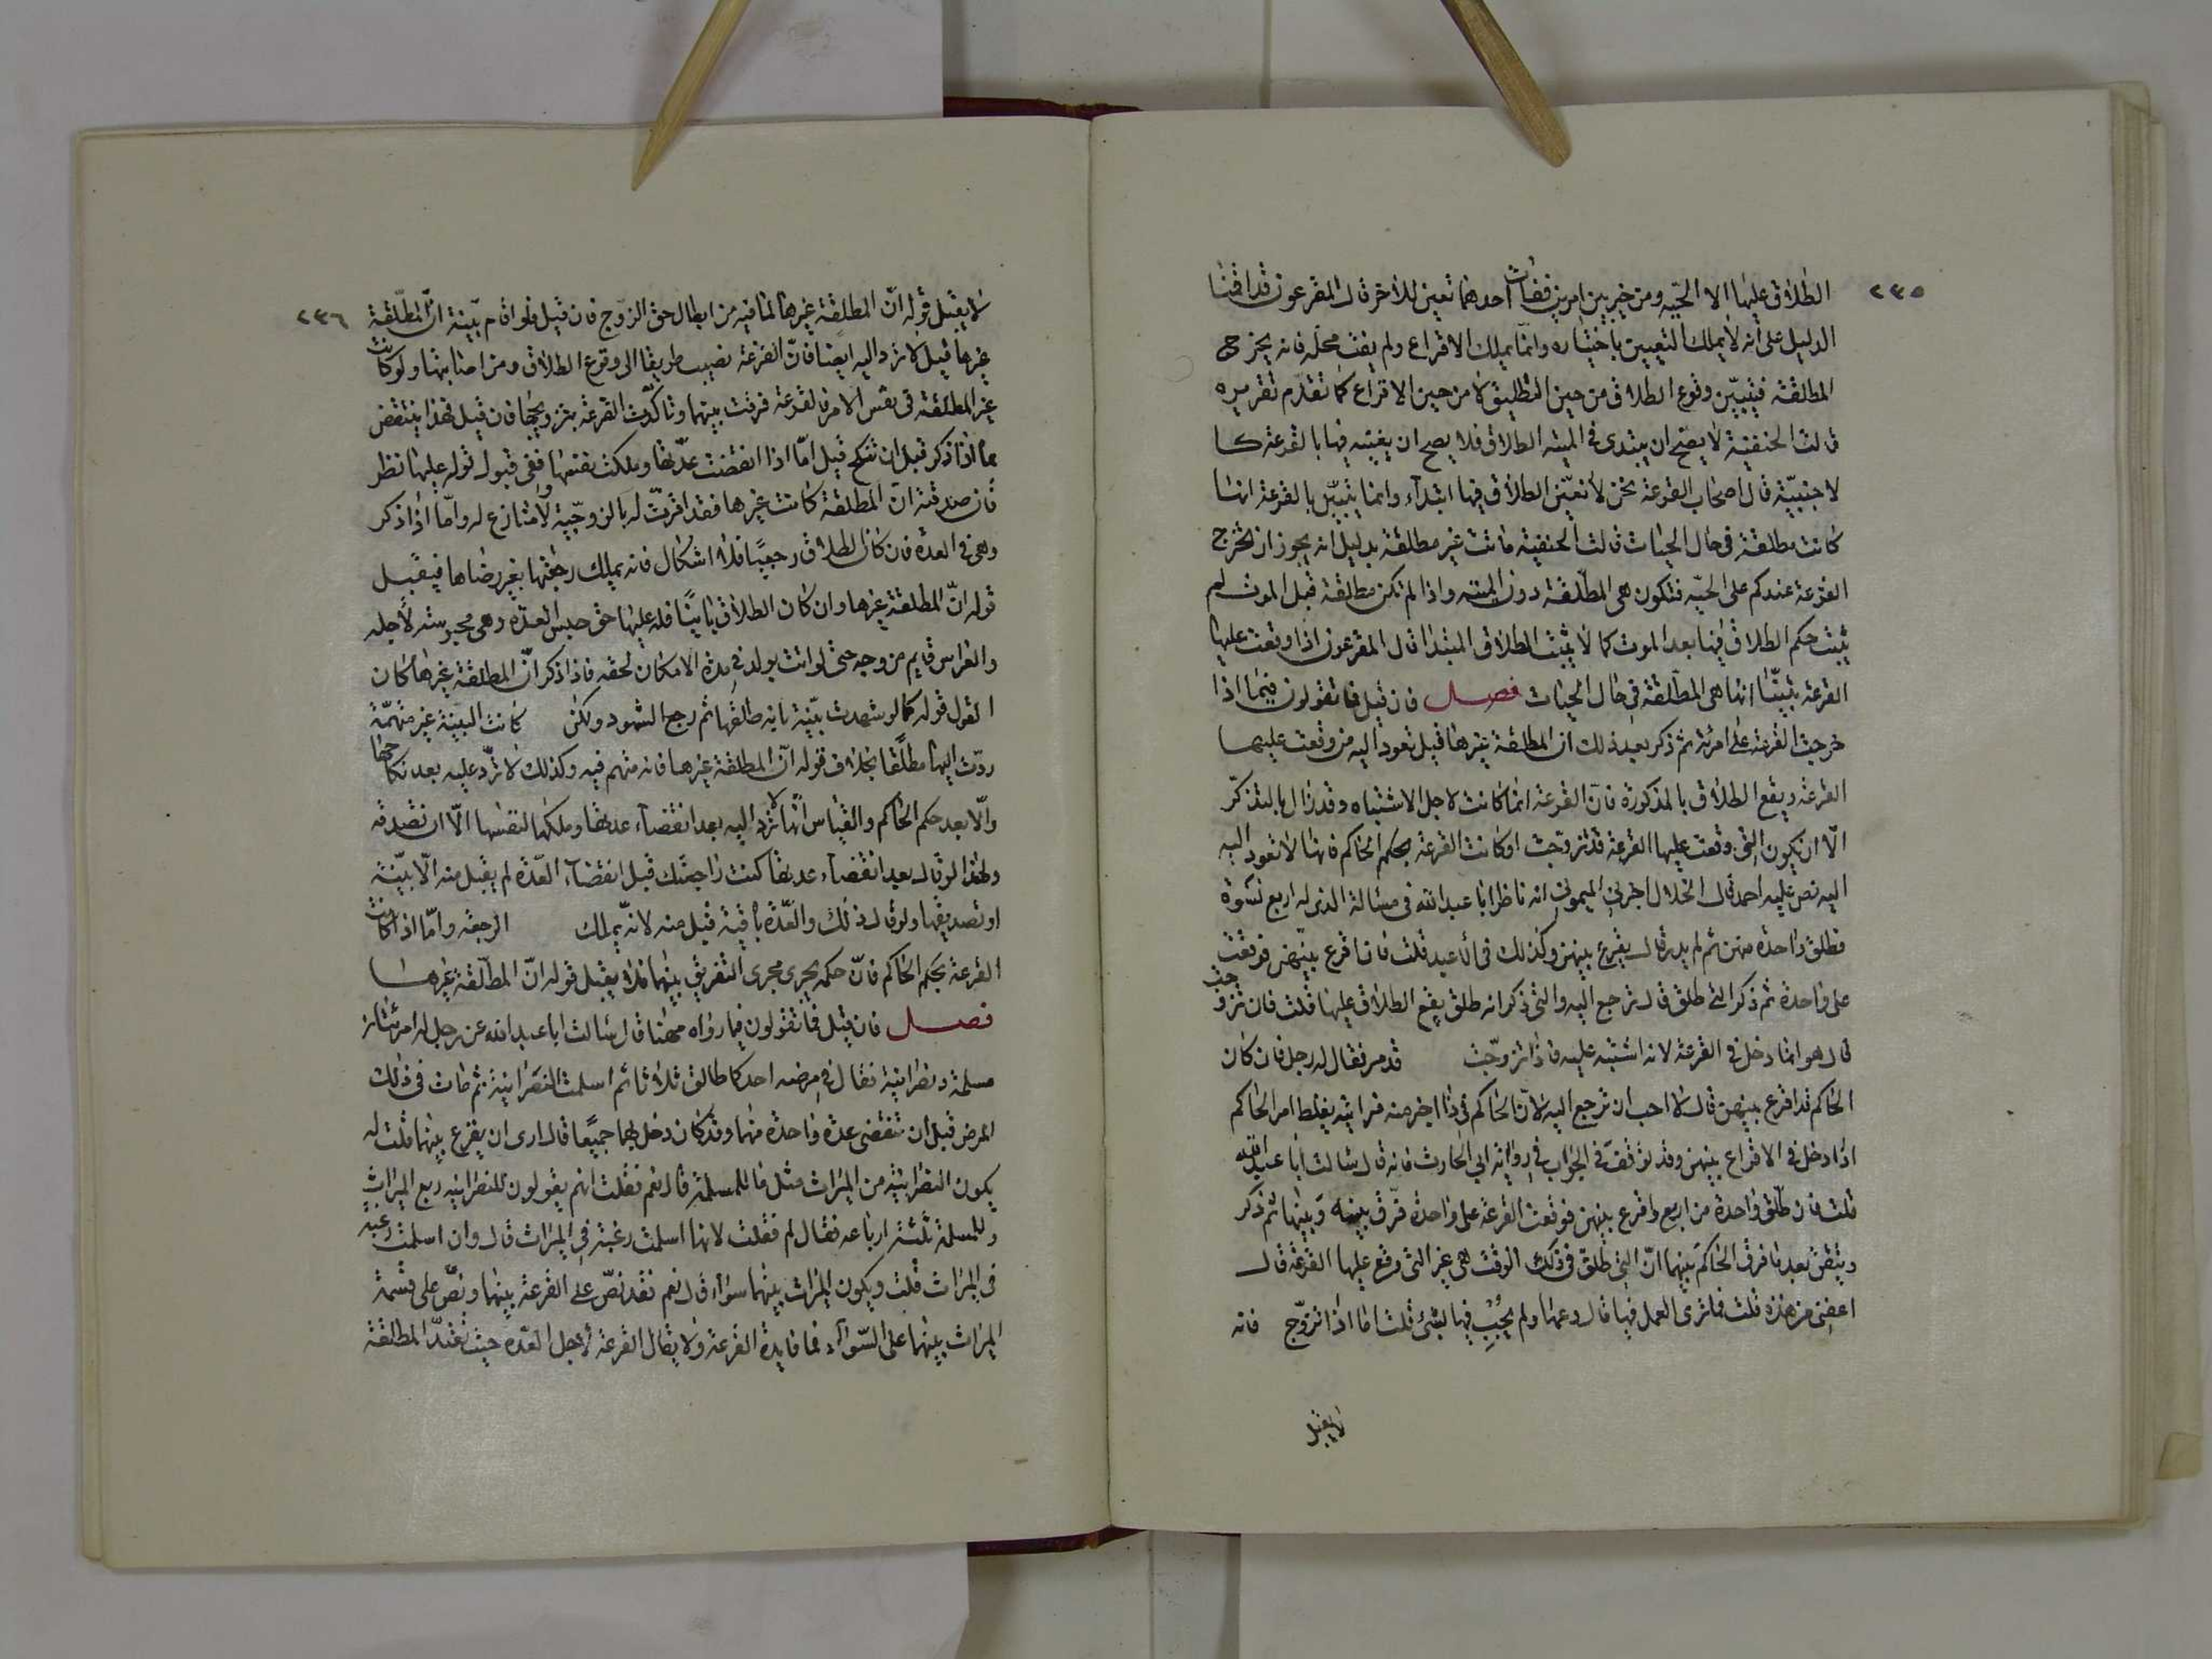 ٢٣٥
الطلاق عليها الا الحيّه ومن خير بين امرين ففات احدهما تعين له الاخر قال المقرعون قد اقمنا
الدليل على انه لا يملك التعيين باختياره وانما يملك الاقراع ولم يفت محله فانه يخرج
المطلقة فيتبيّن وقوع الطلاق من حين التطليق لا من حين الاقراع كما تقدم تقريره
قالت الحنفية لا يصح ان يبتدى في الميته الطلاق فلا يصح ان يعينه فيها بالقرعة كا
لاجنبيّة قال اصحاب القرعة نحن لا نعيّن الطلاق فيها ابتداء وانما يتبيّن بالقرعة انها
كانت مطلقة في حال الحيات قالت الحنفية ماتت غير مطلقة بدليل انه يجوز ان تخرج
القرعة عندكم على الحيّه فتكون هي المطلّقة دون الميته واذا لم تكن مطلقة قبل الموت لم
يثبت حكم الطلاق فيها بعد الموت كما لا يثبت الطلاق المبتدا قال المقرعون اذا وقعت عليها
القرعة تبيّنّا انها هي المطلّقة في حال الحيات فصل فان قيل فما تقولون فيما اذا
خرجت القرعة على امرئة ثم ذكر بعد ذلك ان المطلقة غيرها قيل تعود اليه من وقعت عليها
القرعة ويقع الطلاق بالمذكورة فان القرعة انما كانت لاجل الاشتباه وقد زال بالتذكّر
الّا ان يكون التي وقعت عليها القرعة قد تزوجت او كانت القرعة بحكم الحاكم فانها لا تعود اليه
اليه نص عليه احمد قال الخلال اخبرني الميموني انه ناظر ابا عبد الله في مسئالة الذي له اربع نسوة
فطلق واحدة منهن ثم لم يدر قال يقرع بينهن وكذلك في الاعبد قلت فان اقرع بينهن فوقعت
على واحدة ثم ذكر التي طلق قال ترجع اليه والتي ذكر انه طلق يقع الطلاق عليها قلت فان تزوجت
قال هو انما دخل في القرعة لانه اشتبه عليه فاذا تزوّجت قد مر فقال له رجل فان كان
الحاكم قد اقرع بينهن قال لا احب ان ترجع اليه لان الحاكم في ذا اخير منه فرايته يغلظ امر الحاكم
اذا دخل في الاقراع بينهن وقد توقفّ في الجواب في رواية ابي الحارث فانه قال سالت ابا عبد الله
قلت فان طلّق واحدة من اربع واقرع بينهن فوقعت القرعة على واحدة فرّق بينه وبينها ثم ذكر
وتيقن بعد ما فرق الحاكم بينهما انّ التي طلق في ذلك الوقت هي غير التي وقع عليها القرعة قال
اعفني من هذه قلت فما ترى العمل فيها قال دعها ولم يجب فيها بشئ قلت اما اذا تزوّج فانه
لا يقبل
٢٣٦
لا يقبل قوله انّ المطلقة غيرها لما فيه من ابطال حق الزوج فان قيل فلو اقام بيّنة انّ المطلّقة
غيرها قيل لا تردّ اليه ايضا فانّ القرعة نصيب طريقا الى وقوع الطلاق ومن اصابتها ولو كانت
غير المطلقة في نفس الامر فالقرعة فرقت بينهما وتاكّدت القرعة بتزويجها فان قيل فهذا ينتقض
بما اذا ذكر قبل ان تنكح قيل امّا اذا انقضت عدّتها وملكت نفسها ففي قبول قوله عليها نظر
فان صدقته انّ المطلقة كانت غيرها فقد اقرتّ له بالزوجيّة ولا منازع له وامّا اذا ذكر
وهي في العدة فان كان الطلاق رجعيًا فلا اشكال فانه يملك رجعتها بغير رضاها فيقبل
قوله انّ المطلقة غيرها وان كان الطلاق باينًا فله عليها حق حبس العدّه وهي محبوسته لاجله
والفراس قايم من وجه حتى لو اتت بولد في مدة الامكان لحقه فاذا ذكر انّ المطلقة غيرها كان
القول قوله كما لو شهدت بيّنة بانه طلقها ثم رجع الشهود ولكن كانت البينة غير متهمّة
ردّت اليها مطلقا بخلاف قوله انّ المطلقة غيرها فانه متهم فيه وكذلك لا تردّ عليه بعد نكاحها
والّا بعد حكم الحاكم والقياس انّها لا تردّ اليه بعد انقضاء عدتها وملكها لنفسها الّا ان تصدقه
ولهذا لو قال بعد انقضاء عدتها كنت راجعتك قبل انقضاء العدّة لم يقبل منه الّا ببيّنة
او تصديقها ولو قال ذلك والعدّة باقية قبل منه لانّه يملك الرجعة وامّا اذا كانت
القرعة بحكم الحاكم فانّ حكمه يجرى مجرى التفريق بينهما فلا يقبل قوله انّ المطلّقة غيرها
فصل فان قيل فما تقولون فيما رواه مهنا قال سالت ابا عبد الله عن رجل له امرئتان
مسلمة ونصرانية فقال في مرضه احدكما طالق ثلاثا ثم اسلمت النصرانية ثم مات في ذلك
المرض قبل ان تنقضي عدة واحدة منهما وقد كان دخل بهما جميعًا قال ارى ان يقرع بينهما قلت له
يكون النصرانية من الميراث مثل ما للمسلمة قال نعم فقلت انهم يقولون للنصرانيه ربع الميراث
وللمسلمة ثلثة ارباعه فقال لم فقلت لانها اسلمت رغبة في الميراث قال وان اسلمت رغبة
في الميراث قلت ويكون الميراث بينهما سواء قال نعم فقد نصّ على القرعة بينهما ونصّ على قسمة
الميراث بينهما على السّواء فما فايدة القرعة ولا يقال القرعة لاجل العدّه حيث تعتدّ المطلقة